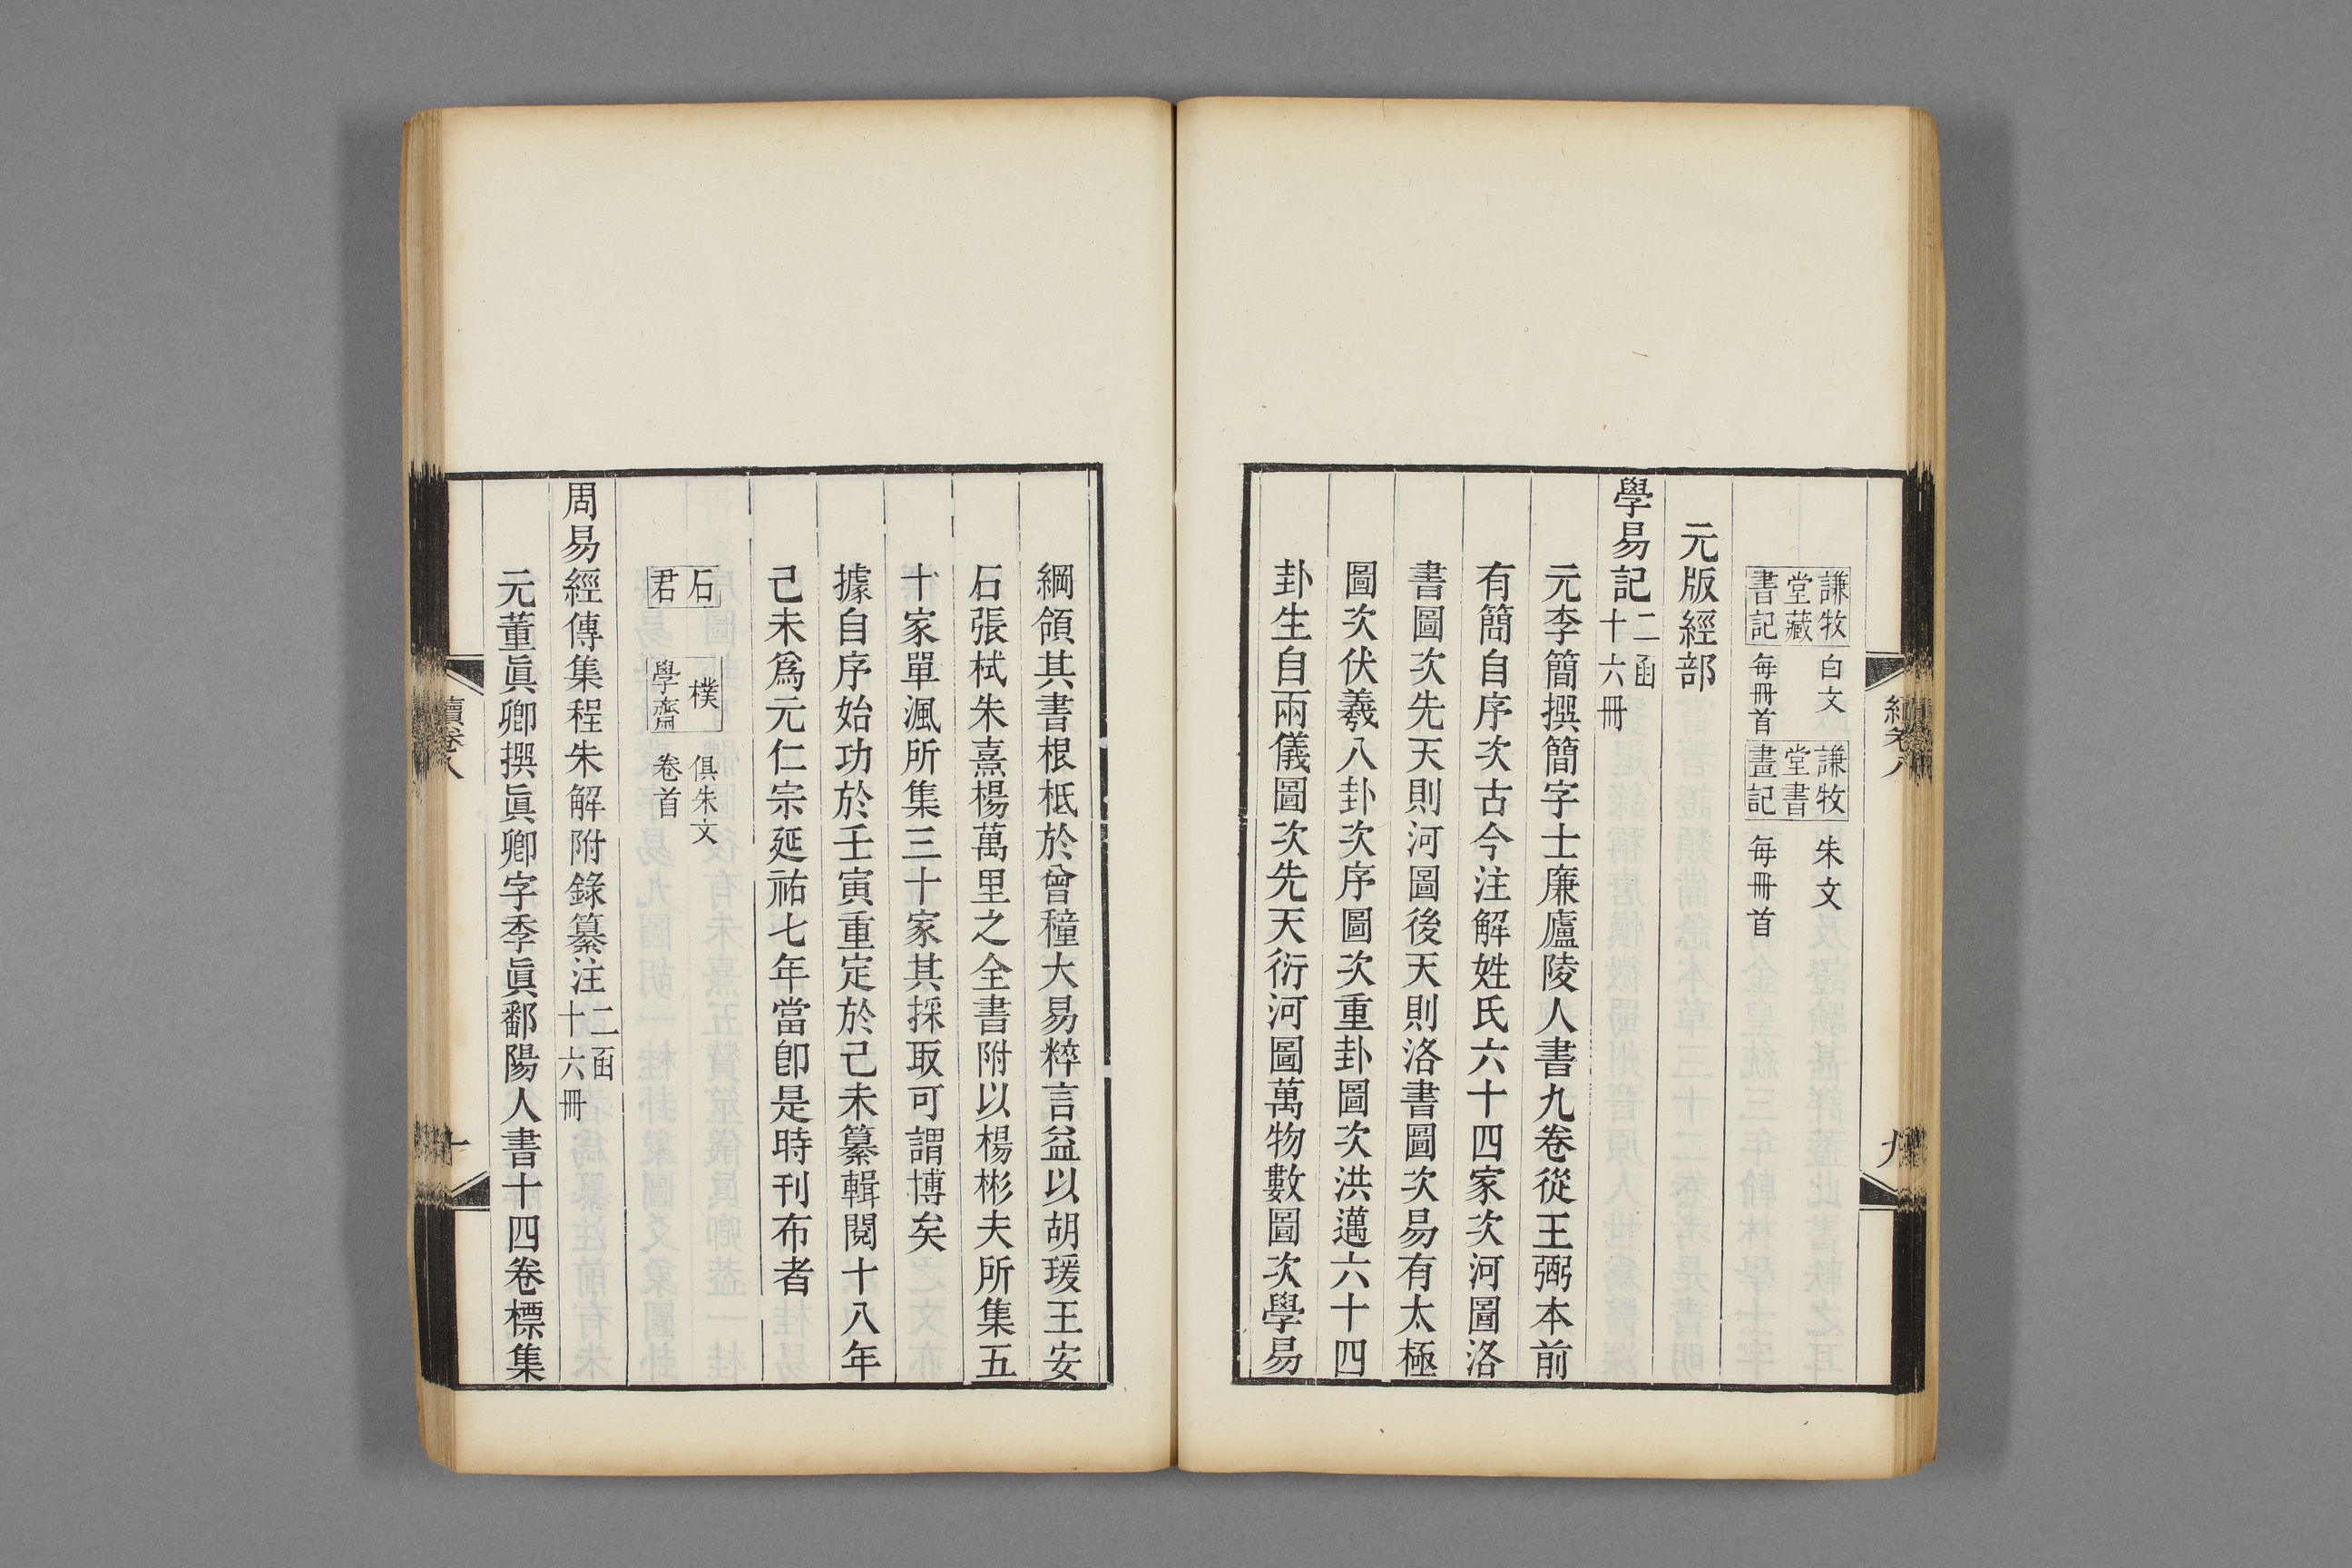 謙牧堂藏書記 白文 每冊首 謙牧堂書畫記 朱文 每冊首
元版經部
學易記 二函十六冊
元李簡撰簡字士廉廬陵人書九卷從王弼本前
有簡自序次古今注解姓氏六十四家次河圖洛
書圖次先天則河圖後天則洛書圖次易有太極
圖次伏羲八卦次序圖次重卦圖次洪邁六十四
卦生自兩儀圖次先天衍河圖萬物數圖次學易
九
綱領其書根柢於曾穜大易粹言益以胡瑗王安
石張栻朱熹楊萬里之全書附以楊彬夫所集五
十家單渢所集三十家其採取可謂博矣
據自序始功於壬寅重定於己未纂輯閱十八年
己未爲元仁宗延祐七年當卽是時刊布者
石君 樸學齋 俱朱文 卷首
周易經傳集程朱解附錄纂注 二函十六冊
元董眞卿撰眞卿字季眞鄱陽人書十四卷標集
續卷八
十